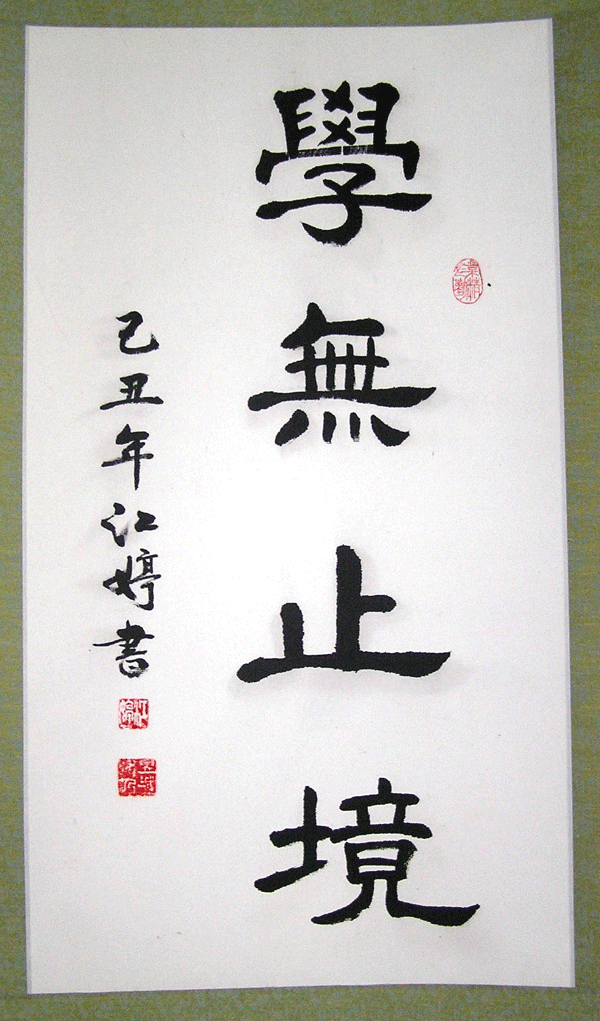 學無止境
己丑年江婷書